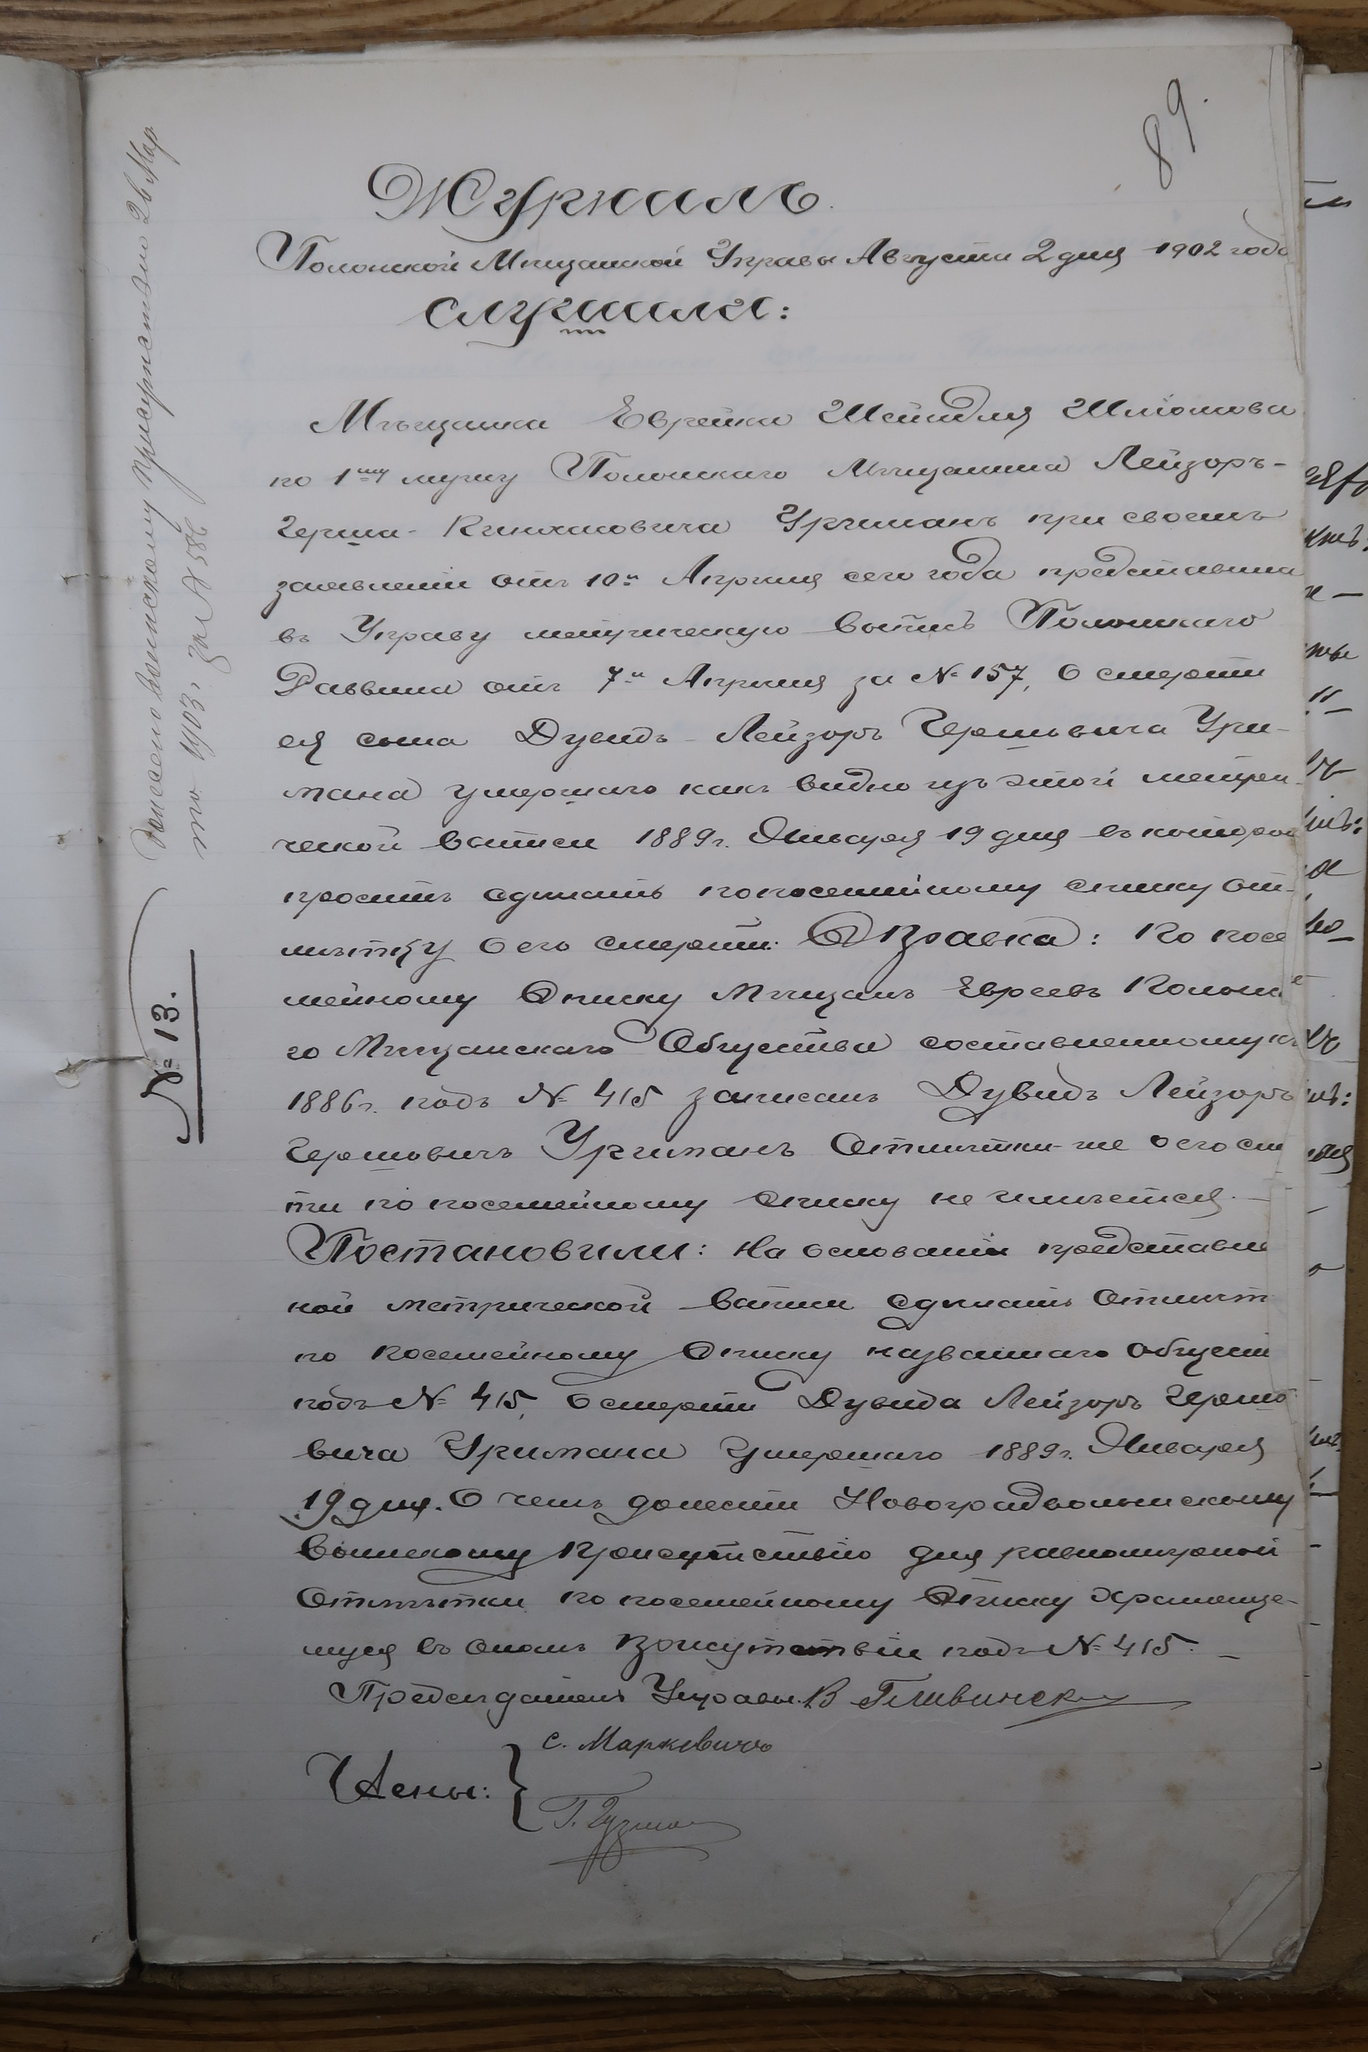 89.
Журналъ
Полонской Мѣщанской Управы Августа 2 дня 1902 года
слушали:
Мѣщанка Еврейка Шейндля Шліомова
по 1му мужу Полонскаго Мѣщанина Лейзоръ-
Герша- Пинхасовича Уричманъ при своемъ
заявленіи отъ 10го Апрѣля сего года представила
въ Управу метрическую выпись Полонскаго
Раввина отъ 7го Апрѣля за № 157, О смерти
ея сына Дувидъ Лейзоръ Гершовича Ури-
мана умершаго какъ видно изъ этой метри
ческой выписи 1889г. Января 19 дня въ которой
проситъ сдѣлать по посемейному списку от-
мѣтку о его смерти. Справка: По посе
мейному Списку Мѣщанъ Евреевъ Полонска
го Мѣщанскаго Общества составленному въ
1886г. подъ № 415 записанъ Дувидъ Лейзоръ
Гершовичъ Уричманъ Отмѣтки-же о его сме
ти по посемейному списку не имѣется.
Постановили: На основаніи представлен
ной метрической выписи сдѣлать Отмѣт
по посемейному Списку названнаго Обществ
подъ № 415, О смерти Дувида Лейзоръ Гершо
вича Уримана Умершаго 1889г. Января
19 дня. О чемъ донести Новоградволынскому
Воинскому Присутствію для равномѣрной
Отмѣтки по посемейному Списку Храняще-
муся въ ономъ Присутствіи подъ № 415.
Предсѣдатель Управы В Гливинск
Члены:
С. Маркевичъ
Г. Гузма
№ 13.
Донесено воинскому присутствію 26 Мар
та 1903 г. за № 586